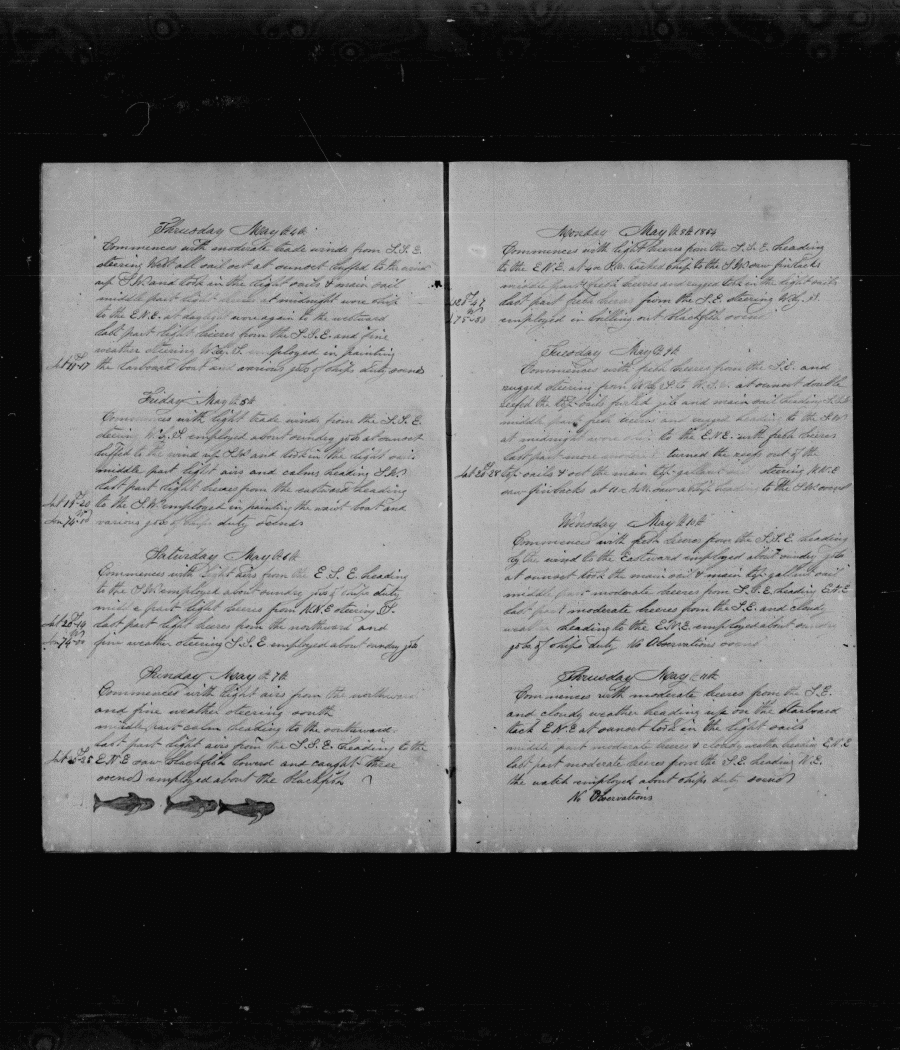 Thursday May the 4th
Commences with moderate trade winds from S.S.E.
steering West all sail out at sunset luffed to the wind
up S.W. and took in the light sails & main sail
middle part light breeze at midnight wore ship
to the E.N.E. at daylight wore again to the westward
last part light breeses from the S.S.E. and fine
weather steering W.by.S. employed in painting
Lat 19-17 the larboard boat and various jobs of ships duty so ends
Friday May the 5th
Commences with light trade winds from the S.S.E.
steering W.by.S. employed about sundry jobs at sunset
luffed to the wind up S.W. and took in the light sails
middle part light airs and calms heading S.W.
last part light breeses from the eastward heading
Lat 19-20 to the S.W. employed in painting the waist boat and
various jobs of ships duty so ends
Saturday May the 6th
Commences with light airs from the E.S.E. heading
to the S.W. employed about sundry jobs of ships duty
middle part light breeses from N.N.E steering S.
last part light breeses from the northward and
fine weather steering S.S.E employed about sundry jobs
Sunday May the 7th
Commences with light airs from the northward
and fine weather steering south
middle part calm heading to the southward
last part light airs from the S.S.E. heading to the
E.N.E saw blackfish lowered and caught three
so ends employed about the blackfish
Monday May the 8th 1854
Commences with light breeses from the S.S.E. heading
to the E.N.E. at 4 tacked ship to the S.W. saw finbacks
middle part fresh breeses and rugged took in the light sails
last part fresh breeses from the S.E. steering W.by.S.
employed in boiling out blackfish so ends
Tuesday May the 9th
Commences with fresh breeses from the S.E. and
rugged steering from W.by.S. to W.S.W. at sunset double
reefed the top-sails furled jib and main sail heading
middle part fresh breeses and rugged heading to the S.W
at midnight wore ship to the E.N.E. with fresh breeses
last part more moderate turned the reefs out of the
top-sails & set the main top-gallant sail steering N.N.E
saw finbacks at 11 A.M. saw a ship heading to the S.W. so ends
Wensday May the 10th
Commences with fresh breeses from the S.S.E. heading
by the wind to the Eastward employed about sundry jobs
at sunset took the main sail & main top-gallant sail
middle part moderate breeses from S.S.E. heading E.N.E
last part moderate breeses from the S.E. and cloudy
weather heading to the E.N.E. employed about sundry
jobs of ships duty No Observations so ends
Thursday May the 11th
Commences with moderate breeses from the S.E.
and cloudy weather heading up on the starboard
tack E.N.E at sunset took in the light sails
middle part moderate breeses & cloudy weather heading E.N.E
last part moderate breeses from the S.E heading N.E.
the watch employed about ships duty so ends
No Observations